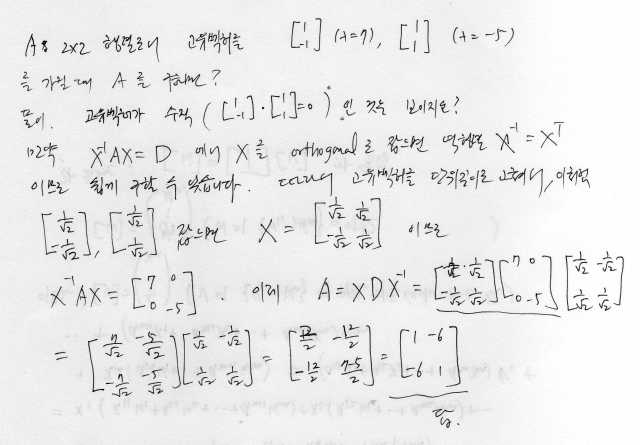 A를 2x2 행렬로서 고유벡터를 [1 -1] (λ=7), [1 1] (λ=-5)
를 가질 때 A를 구하면?
풀이. 고유벡터가 수직 ([1 -1]·[1 1]=0) 인 것은 보이지요?
만약 X⁻¹AX = D 에서 X를 orthogonal로 잡으면 역행렬 X⁻¹ = Xᵀ
이므로 쉽게 구할 수 있습니다. 따라서 고유벡터를 단위길이로 고쳐서,
[1/√2 -1/√2], [1/√2 1/√2] 잡으면 X = [1/√2 1/√2; -1/√2 1/√2] 이므로
X⁻¹AX = [7 0; 0 -5]. 이제 A = XDX⁻¹ = [1/√2 1/√2; -1/√2 1/√2] [7 0; 0 -5] [1/√2 -1/√2; 1/√2 1/√2]
= [7/√2 -5/√2; -7/√2 -5/√2] [1/√2 -1/√2; 1/√2 1/√2] = [2/2 -12/2; -12/2 7-5/2] = [1 -6; -6 1]
답.